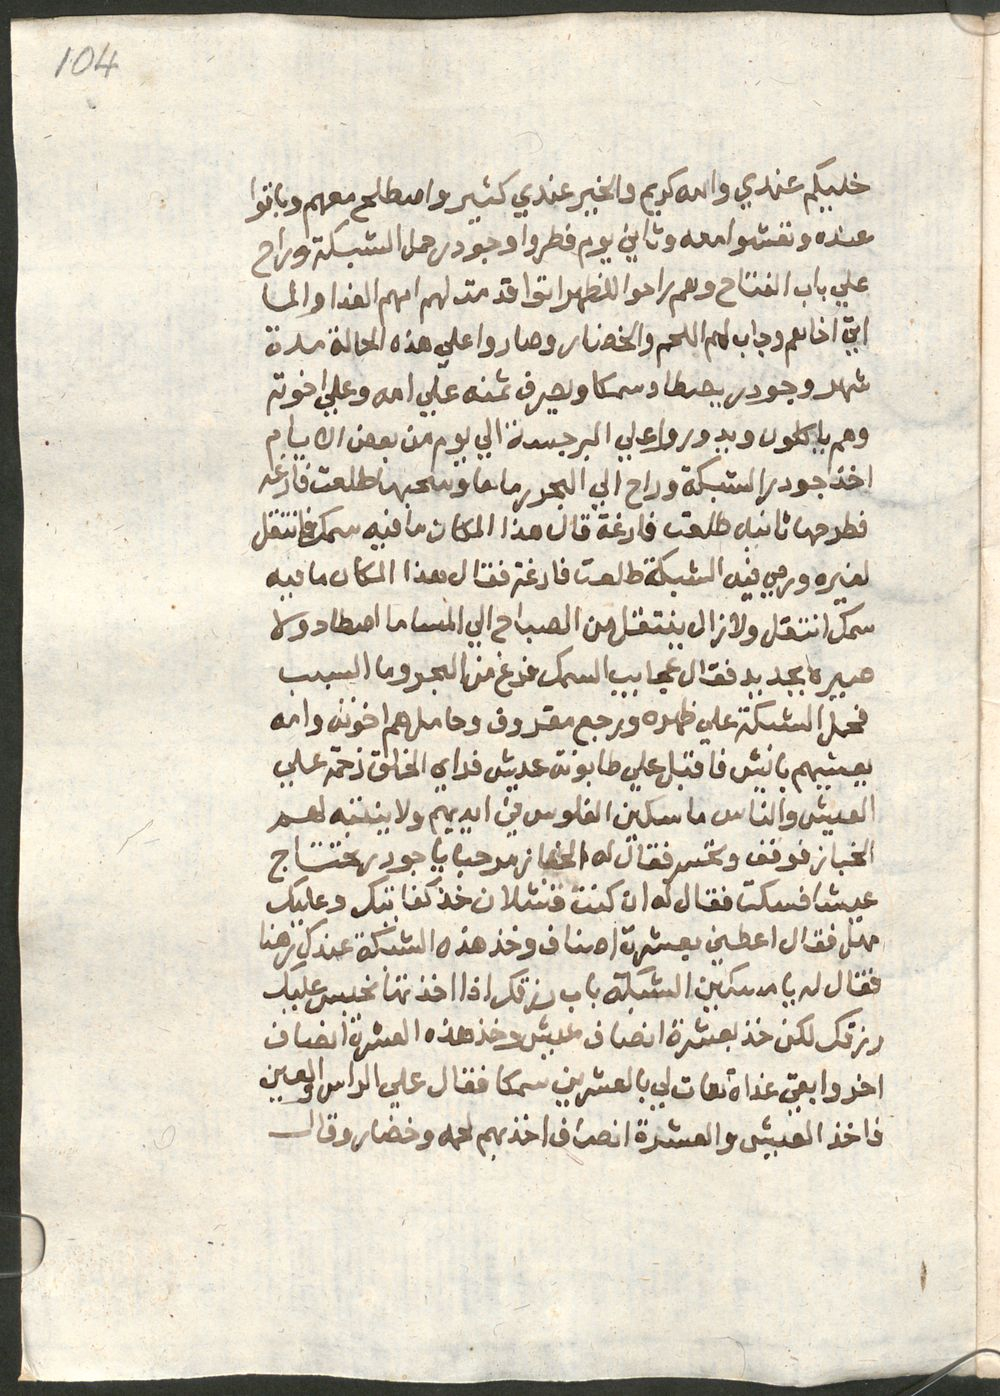 104
خليكم عندي والله كريم والخير عندي كثير واصطلح معهم وباتوا
عنده وتعشوا معه وثاني يوم فطروا وجودر حمل الشبكة وراح
علي باب الفتاح وهم راحوا للظهر اتوا قدمت لهم امهم الغدا والمسا
اتي اخاهم وجاب لهم اللحم والخضار وصاروا علي هذه الحالة مدة
شهر وجودر يصطاد سمكا ويصرف ثمنه علي امه وعلي اخوته
وهم ياكلون ويدوروا علي البرجسة الي يوم من بعض الايام
اخذ جودر الشبكة وراح الي البحر رماها وسحبها طلعت فارغه
فطرحها ثانيه طلعت فارغة قال هذا المكان ما فيه سمك فانتقل
لغيره ورمي فيه الشبكة طلعت فارغة فقال هذا المكان ما فيه
سمك انتقل ولا زال ينتقل من الصباح الي المسا ما اصطاد ولا
صيره بجديد فقال عجايب السمك فرغ من البحر وما السبب
فحمل الشبكة علي ظهره ورجع مقروف وحامل هم اخوته وامه
يعشيهم بانيش فاقبل علي طابونة عديش فراي الخلق زحمة علي
العيش والناس ماسكين الفلوس في ايديهم ولا ينتبه لهم
الخباز فوقف وتحسر فقال له الخباز مرحبا يا جودر تحتاج
عيشا فسكت فقال له ان كنت فشلان خذ كفايتك وعليك
مهل فقال اعطيني بعشرة انصاف وخذ هذه الشبكة عندك رهنا
فقال له يا مسكين الشبكة باب رزقك اذا اخذتها نحبس عليك
رزقك لكن خذ بعشرة انصاف عيش وخذ هذه العشرة انصاف
اخر وابقي غداة هات لي بالعشرين سمكا فقال علي الراس والعين
فاخذ العيش والعشرة انصاف اخذ بهم لحمه وخضار وقال